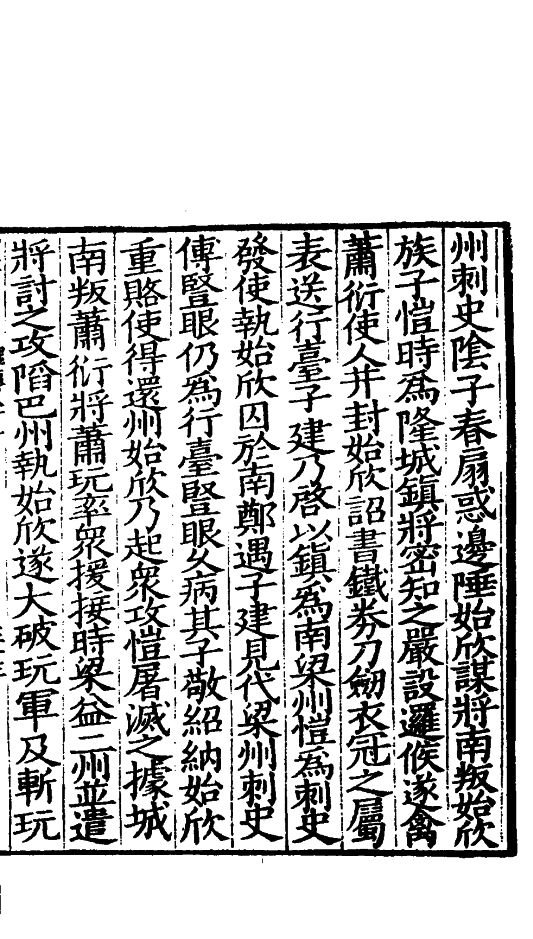 州刺史陰子春扇惑邊陲始欣謀將南叛始欣
族子愷時爲隆城鎮將密知之嚴設邏候遂禽
蕭衍使人并封始欣詔書鐵券刀劒衣冠之屬
表送行臺子建乃啓以鎮爲南梁州愷爲刺史
發使執始欣囚於南鄭遇子建見代梁州刺史
傅豎眼仍爲行臺豎眼久病其子敬紹納始欣
重賂使得還州始欣乃起衆攻愷屠滅之據城
南叛蕭衍將蕭玩率衆援接時梁益二州並遣
將討之攻陷巴州執始欣遂大破玩軍及斬玩